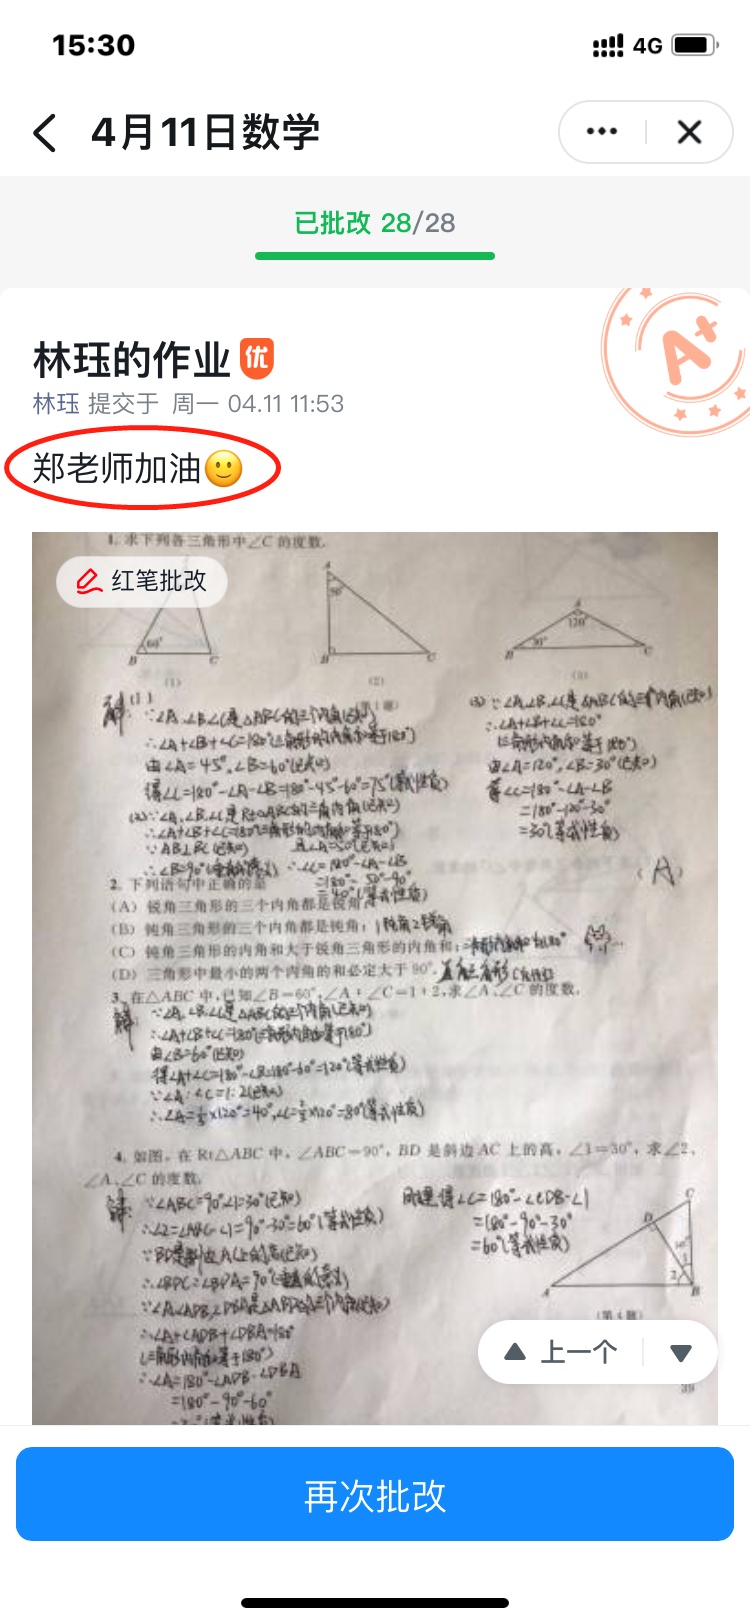 15:30
4G
4月11日数学
已批改 28/28
A+
林珏的作业 优
林珏 提交于 周一 04.11 11:53
郑老师加油🙂
1. 求下列各三角形中∠C的度数.
红笔批改
A
50°
A
120°
60°
30°
B C
B C
B C
(1)
(2)
(3)
解:(1) ∵∠A、∠B、∠C是△ABC的三个内角(已知)
∴∠A+∠B+∠C=180°(三角形的内角和等于180°)
由∠A=45°,∠B=60°(已知)
得∠C=180°-∠A-∠B=180°-45°-60°=75°(等式性质)
(2)∵∠A、∠B、∠C是Rt△ABC的三角内角(已知)
∴∠A+∠B+∠C=180°(三角形的内角和等于180°)
∵AB⊥BC(已知) 且∠A=50°(已知)
∴∠B=90° ∴∠C=180°-∠A-∠B
=180°-50°-90°
=40°(等式性质)
(3) ∵∠A、∠B、∠C是△ABC的三个内角(已知)
∴∠A+∠B+∠C=180°
(三角形内角和等于180°)
由∠A=120°,∠B=30°(已知)
得∠C=180°-∠A-∠B
=180°-120°-30°
=30°(等式性质)
2. 下列语句中正确的是
(A)
(A) 锐角三角形的三个内角都是锐角
(B) 钝角三角形的三个内角都是钝角;
(C) 钝角三角形的内角和大于锐角三角形的内角和;
(D) 三角形中最小的两个内角的和必定大于90°. 直角三角形
3. 在△ABC中,已知∠B=60°,∠A:∠C=1:2,求∠A、∠C的度数.
解: ∵∠A、∠B、∠C是△ABC的三个内角(已知)
∴∠A+∠B+∠C=180°(三角形内角和等于180°)
由∠B=60°(已知)
得∠A+∠C=180°-∠B=180°-60°=120°(等式性质)
∵∠A:∠C=1:2(已知)
∴∠A=1/3×120°=40°,∠C=2/3×120°=80°(等式性质)
4. 如图,在Rt△ABC中,∠ABC=90°,BD是斜边AC上的高,∠1=30°,求∠2、
∠A、∠C的度数.
解: ∵∠ABC=90°∠1=30°(已知)
∴∠2=∠ABC-∠1=90°-30°=60°(等式性质)
∵BD是斜边AC上的高(已知)
∴∠BDC=∠BDA=90°
∵∠A、∠ADB、∠DBA是△ABD的三个内角(已知)
∴∠A+∠ADB+∠DBA=180°
(三角形内角和等于180°)
∴∠A=180°-∠ADB-∠DBA
=180°-90°-60°
同理得∠C=180°-∠CDB-∠1
=180°-90°-30°
=60°(等式性质)
C
D
1
2
A B
(第4题)
上一个
39
再次批改